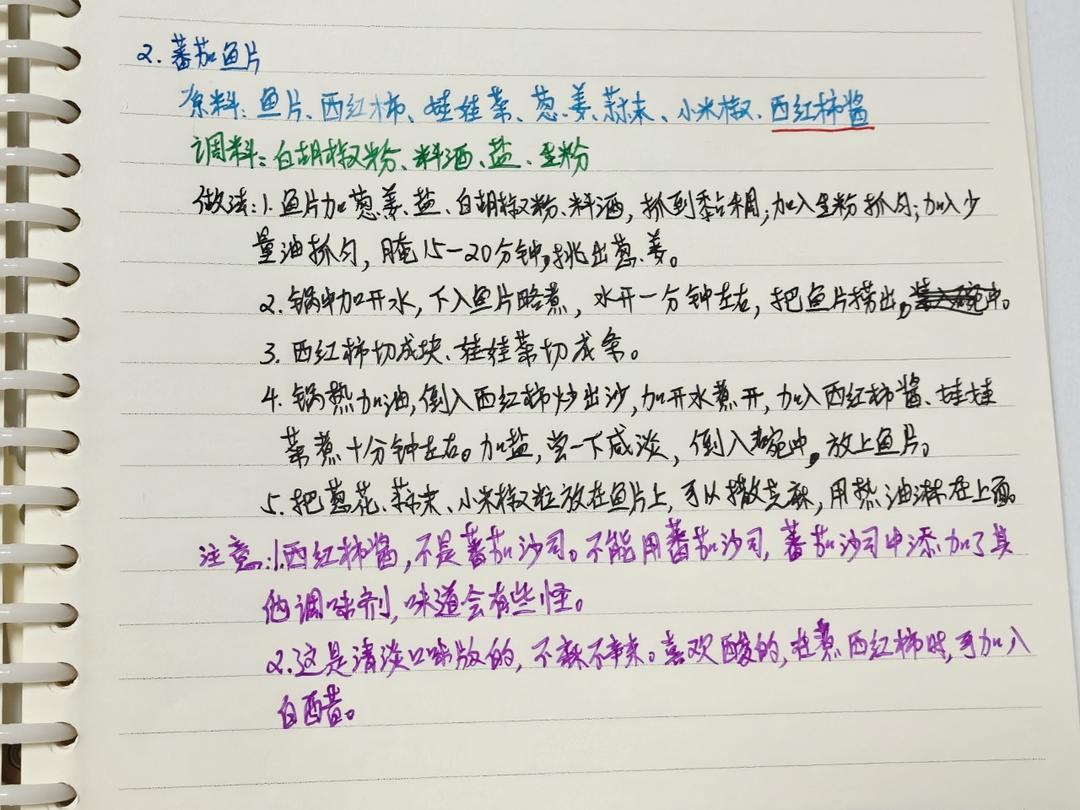 2.蕃茄鱼片
原料:鱼片、西红柿、娃娃菜、葱、姜、蒜末、小米椒、西红柿酱
调料:白胡椒粉、料酒、盐、生粉
做法:1.鱼片加葱、姜、盐、白胡椒粉、料酒,抓到黏稠;加入生粉抓匀;加入少
量油抓匀,腌15-20分钟,挑出葱、姜。
2.锅中加开水,下入鱼片略煮,水开一分钟左右,把鱼片捞出。
3.西红柿切成块、娃娃菜切成条。
4.锅热加油,倒入西红柿炒出沙,加开水煮开,加入西红柿酱、娃娃
菜煮十分钟左右。加盐,尝一下咸淡,倒入碗中,放上鱼片。
5.把葱花、蒜末、小米椒粒放在鱼片上,可以撒芝麻,用热油淋在上面。
注意:1.西红柿酱,不是蕃茄沙司。不能用蕃茄沙司,蕃茄沙司中添加了其
他调味剂,味道会有些怪。
2.这是清淡口味版的,不麻不辣。喜欢酸的,在煮西红柿时,可加入
白醋。